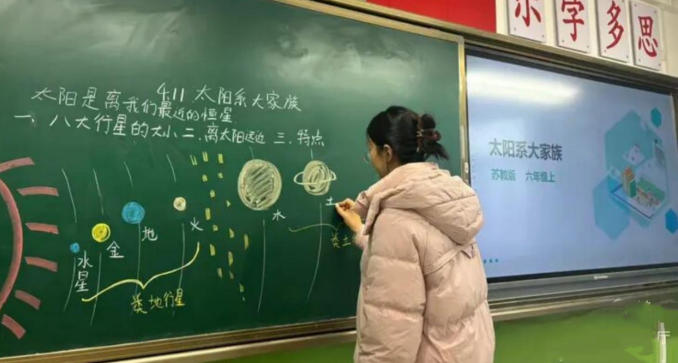 学多思
4.11 太阳系大家族
太阳是离我们最近的恒星
一、八大行星的大小 二、离太阳远近 三、特点
水星
金
地
火
水
土
类地行星
类土
太阳系大家族
苏教版 六年级上